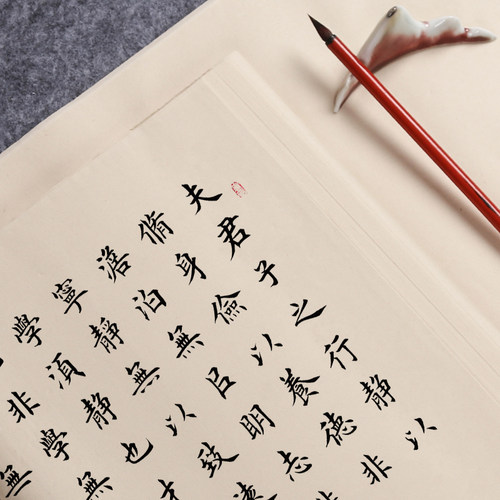 夫君子之行靜以
脩身儉以養德非
澹泊無㠯明志非
寧靜無以致遠
學須靜也才
非學無
無